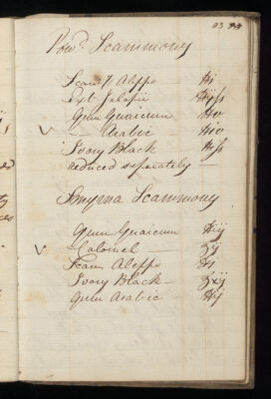 93
Powd Scammony
Scam Aleppo ℔j
Ext Jalapii ℔jss
Gum Guaicum ℔iv
— Arabic — ℔iv
Ivory Black — ℔ss
reduced seperately —
Smyrna Scammony
Gum Guaicum ℔ij
Calomel ℥ij
Scam Aleppo ℔j
Ivory Black — ℥xij
Gum Arabic — ℔ij